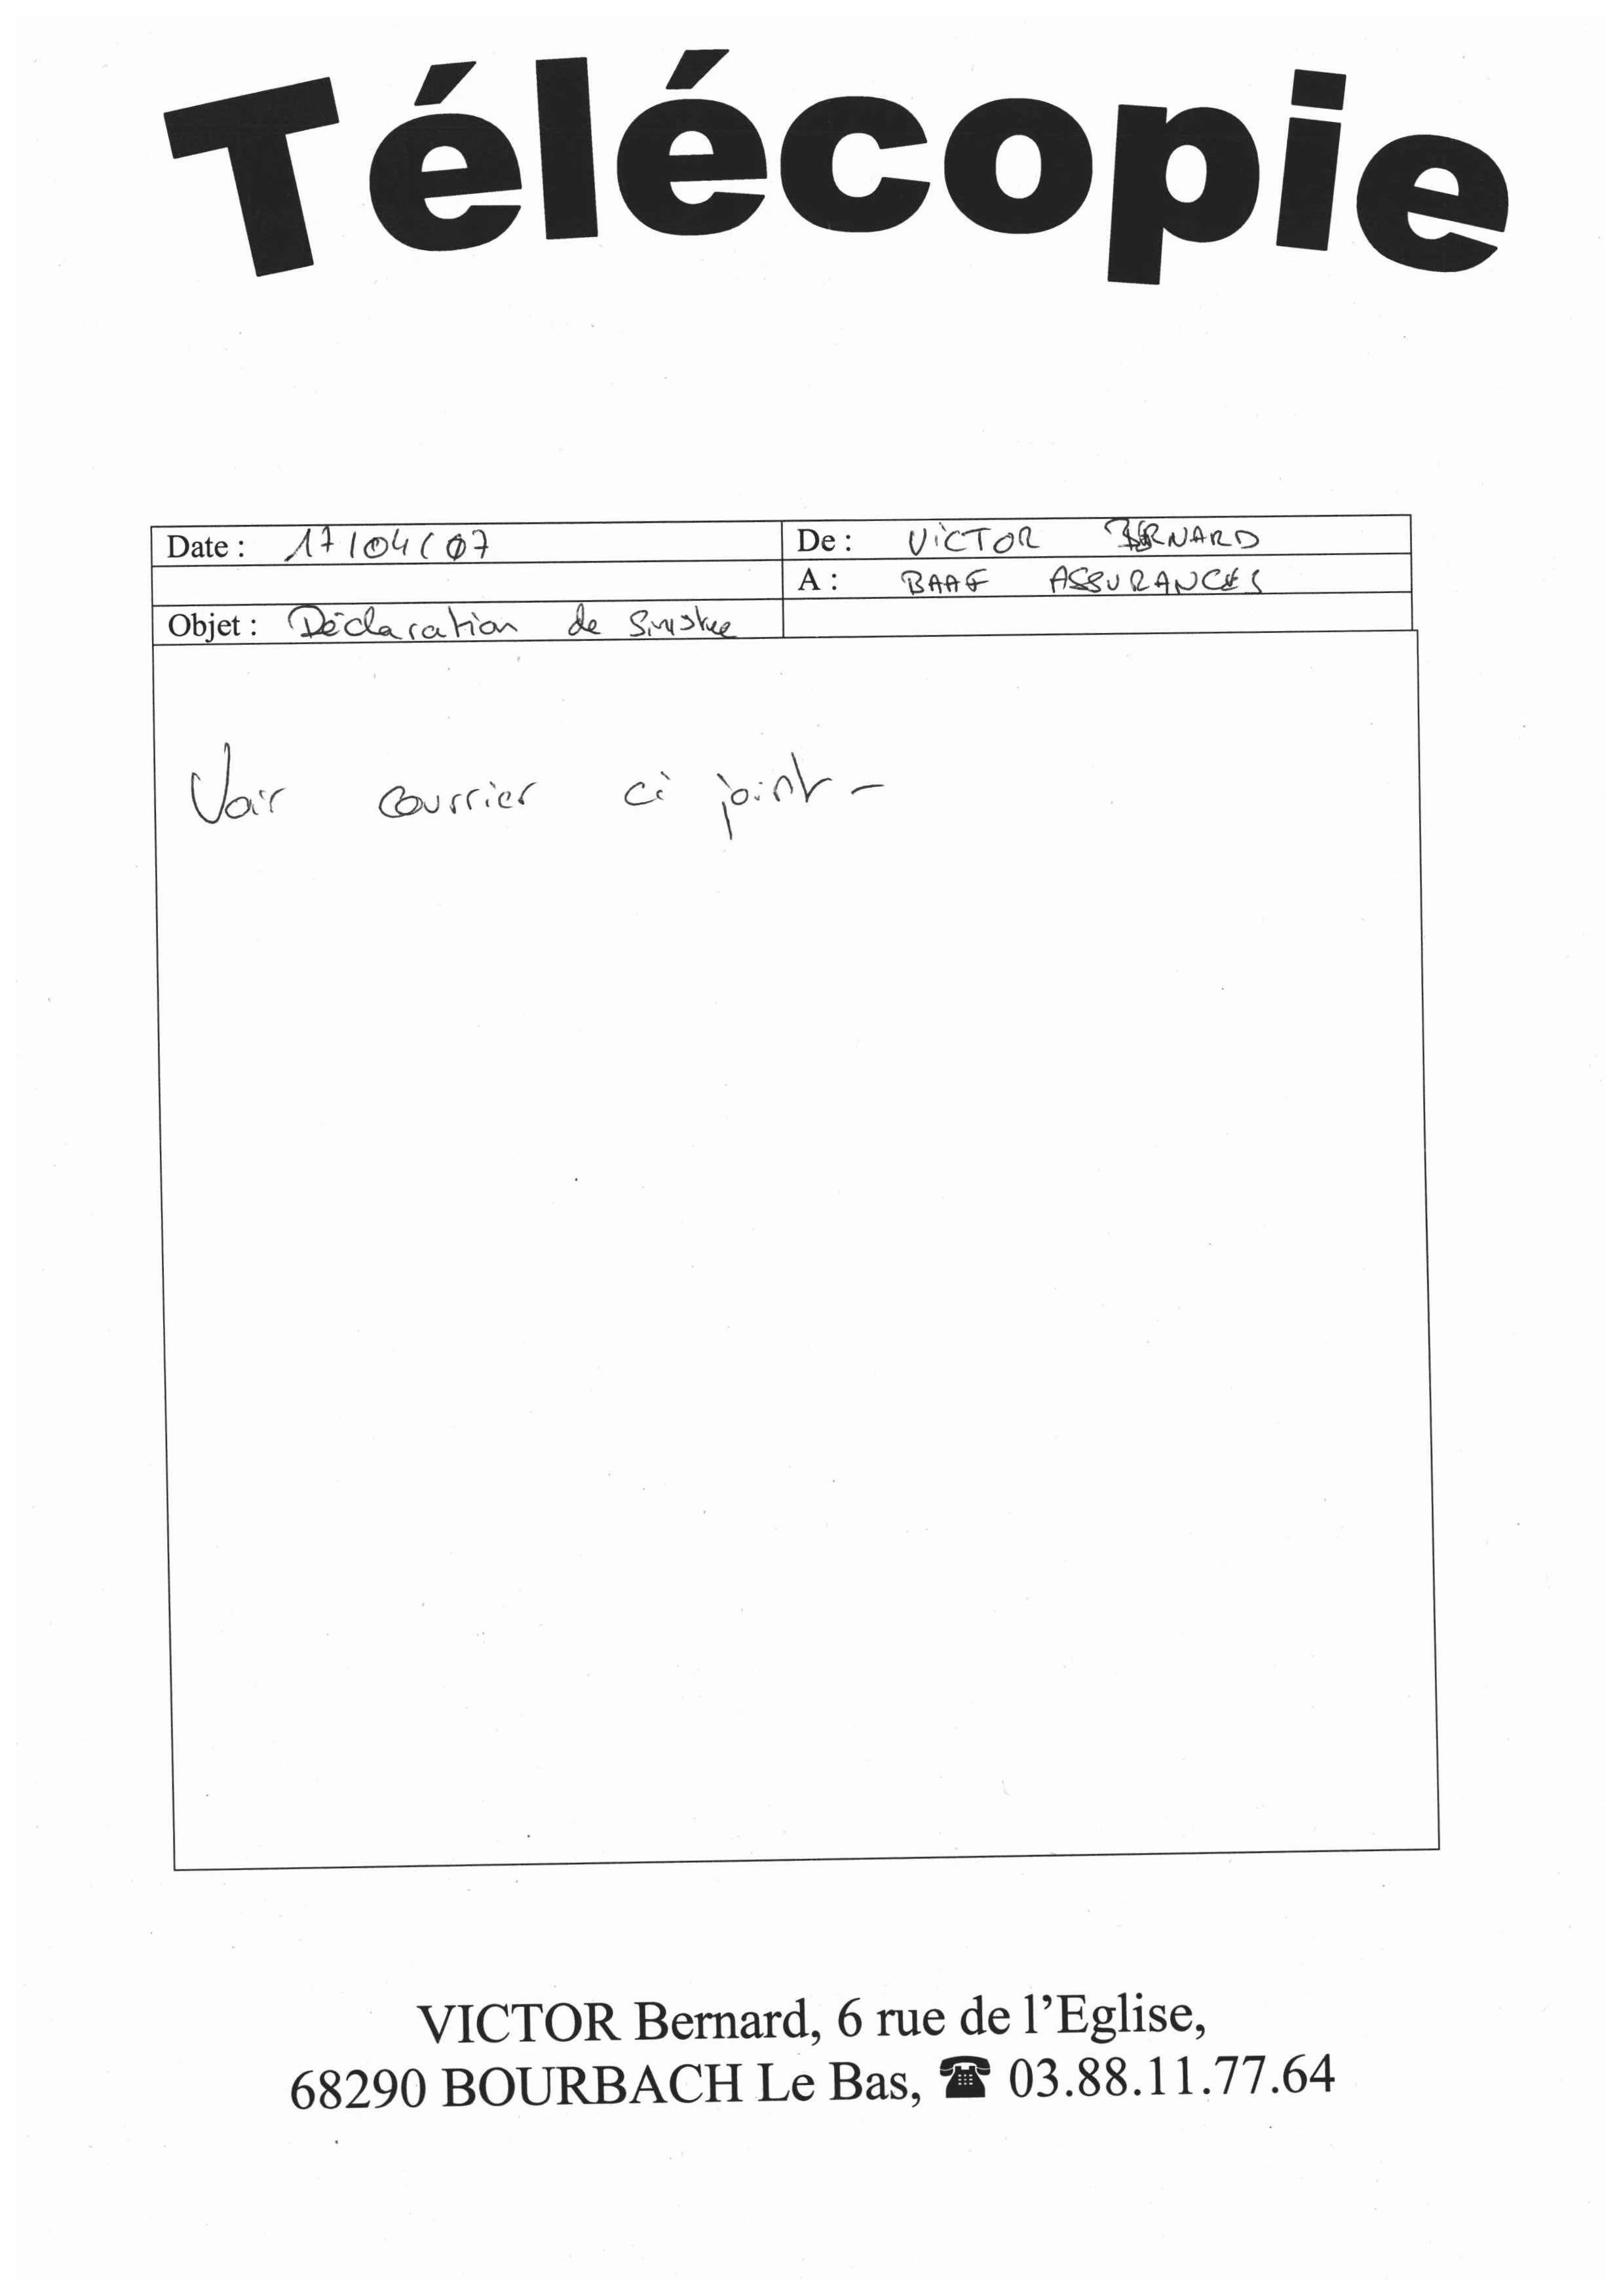 Télécopie
Date : 17/04/07
De : VICTOR BERNARD
A : BAAF ASSURANCES
Objet : Déclaration de Sinistre
Voir courrier ci joint -
VICTOR Bernard, 6 rue de l'Eglise,
68290 BOURBACH Le Bas, ☎ 03.88.11.77.64